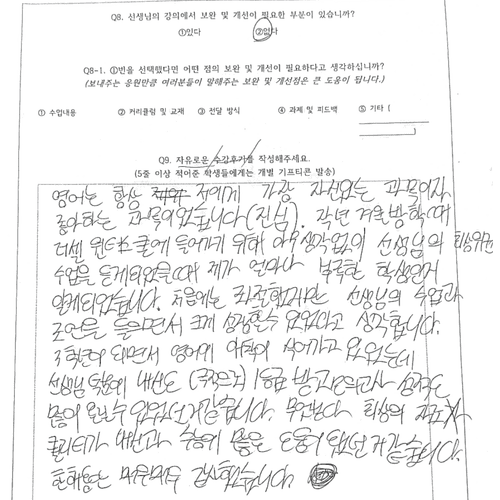 Q8. 선생님의 강의에서 보완 및 개선이 필요한 부분이 있습니까?
①있다 ②없다
Q8-1. ①번을 선택했다면 어떤 점의 보완 및 개선이 필요하다고 생각하십니까?
(보내주는 응원만큼 여러분들이 말해주는 보완 및 개선점은 큰 도움이 됩니다.)
① 수업내용 ② 커리큘럼 및 교재 ③ 전달 방식 ④ 과제 및 피드백 ⑤ 기타 (
)
Q9. 자유로운 수강후기를 작성해주세요.
(5줄 이상 적어준 학생들에게는 개별 기프티콘 발송)
영어는 항상 저에게 가장 자신있는 과목이자
좋아하는 과목이었습니다(진심). 작년 겨울방학 때
러셀 윈터스쿨에 들어가기 위해 아무생각없이 선생님의
수업을 듣게되었을때 제가 얼마나 부족한 학생인지
알게되었습니다. 처음에는 좌절했지만 선생님의 수업과
조언을 들으면서 크게 성장할수 있었다고 생각합니다.
3학년이 되면서 영어에 애정이 식어가고 있었는데
선생님 덕분에 내신도 1등급 받고 모의고사 성적도
많이 오를수 있었던거같습니다. 무엇보다 최상의 자료
퀄리티가 내신과 수능에 많은 도움이 되었던거 같습니다.
한해동안 너무너무 감사했습니다.